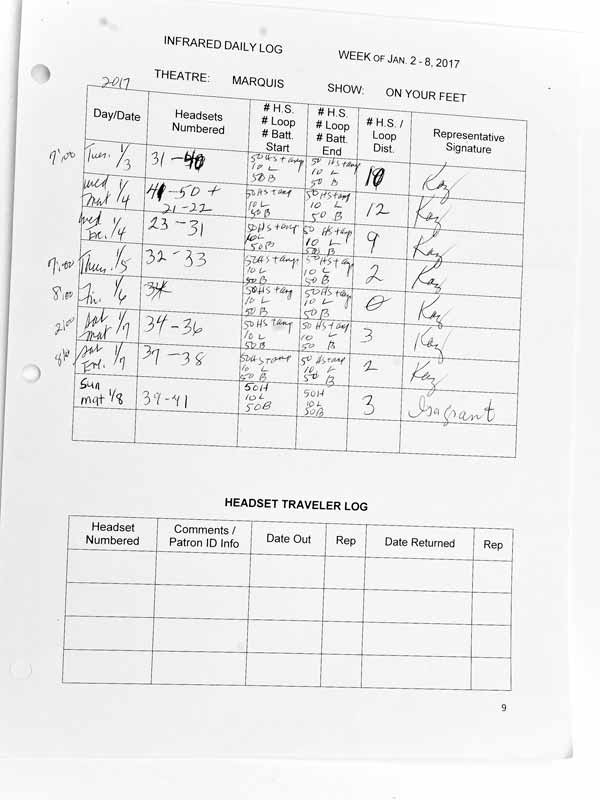 INFRARED DAILY LOG
WEEK OF JAN. 2 - 8, 2017
2017
THEATRE: MARQUIS SHOW: ON YOUR FEET
Day/Date Headsets Numbered # H.S. # Loop # Batt. Start # H.S. # Loop # Batt. End # H.S. / Loop Dist. Representative Signature
7:00 Tues. 1/3 31-40 50 HS + amp 10 L 50 B 50 HS + amp 10 L 50 B 10 Kay
Wed mat 1/4 41-50 + 21-22 50 HS + amp 10 L 50 B 50 HS + amp 10 L 50 B 12 Kay
Wed Eve. 1/4 23-31 50 HS + amp 10 L 50 B 50 HS + amp 10 L 50 B 9 Kay
7:00 Thurs. 1/5 32-33 50 HS + amp 10 L 50 B 50 HS + amp 10 L 50 B 2 Kay
8:00 Fri. 1/6 50 HS + amp 10 L 50 B 50 HS + amp 10 L 50 B 0 Kay
2:00 Sat mat 1/7 34-36 50 HS + amp 10 L 50 B 50 HS + amp 10 L 50 B 3 Kay
Sat Eve. 1/7 37-38 50 HS + amp 10 L 50 B 50 HS + amp 10 L 50 B 2 Kay
Sun mat 1/8 39-41 50H 10L 50B 50H 10L 50B 3
HEADSET TRAVELER LOG
Headset Numbered Comments / Patron ID Info Date Out Rep Date Returned Rep
9